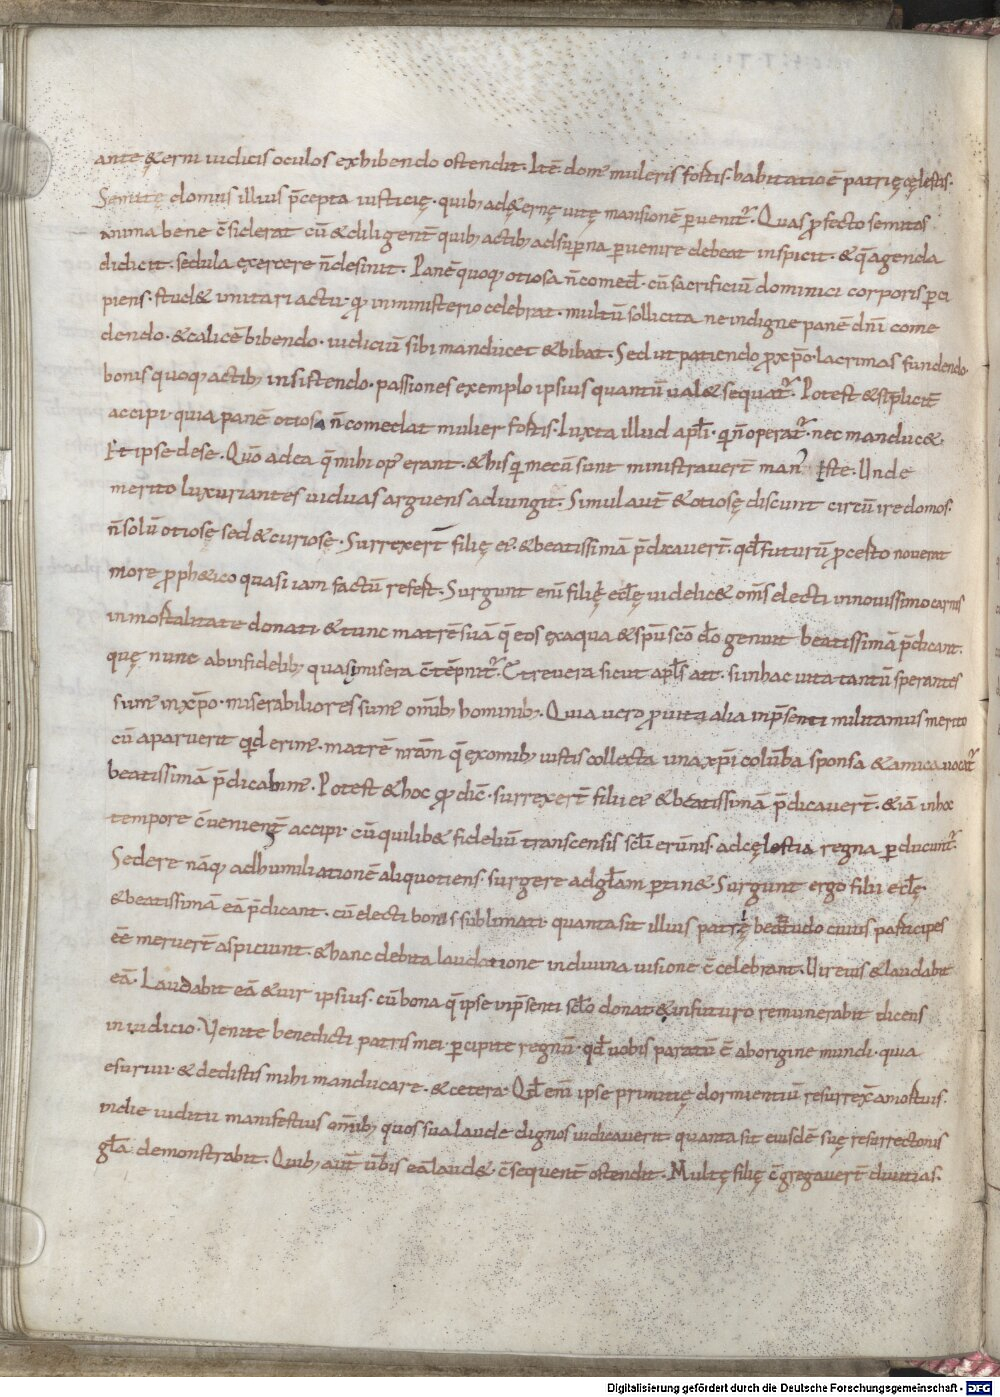 ante &erni iudicis oculos exhibendo ostendit. Itē. dom' mulieris fortis. habitatio ē patrię cęlestis.
Semitę domus illius p̄cepta iusticię. quib; ad ę&ernę uitę mansionē peruenit̄. Quas profecto semitas
anima bene c̄siderat cū & diligent̄ quib; actib; ad superna peruenire debeat inspicit. & q̄ agenda
didicit. sedula exercere n̄ desinit. Panē quoq; otiosa n̄ comed̄. cū sacrificiū dominici corporis perci
piens. stud& imitari actu. qđ in ministerio celebrat. multū sollicita ne indigne panē dn̄i come
dendo. & calicē bibendo. iudiciū sibi manducet & bibat. Sed ut patiendo pro xp̄o. lacrimas fundendo.
bonis quoq; actib; insistendo. passiones exemplo ipsius quantū ual& sequat̄. Potest & simplicit̄
accipi. quia panē otiosa n̄ comedat mulier fortis. Iuxta illud apl̄i. qui n̄ operat̄. nec manduc&.
Et ipse de se. Quō ad ea q̄ mihi op' erant. & his qui mecū sunt ministraver̄t man' iste. Unde
merito luxuriantes uiduas arguens adiungit. Simul aut̄ & otiosę discunt circūire domos.
n̄ solū otiosę sed & curiosę. Surrexer̄t filię ei'. & beatissimā p̄dicaver̄t. qđ futurū p certo noverat
more proph&ico quasi iam factū refert. Surgunt eni filię ęccl̄ę uidelic& om̄s electi in nouissimo carnis
inmortalitate donati & tunc matrē suā q̄ eos ex aqua & sp̄u scō dō genuit beatissimā p̄dicant.
quę nunc ab infidelib; quasi misera c̄tēpnit̄. Et revera sicut apl̄s ait. si in hac uita tantū sperantes
sum' in xp̄o. miserabiliores sum' omīb; hominib;. Quia uero pro uita alia in p̄senti militamus merito
cū aparuerit quid erim'. matrē nr̄am q̄ ex omib; iustis collecta una xp̄i colūba sponsa & amica uocat̄
beatissimā p̄dicabim'. Potest & hoc qđ dic̄. surrexer̄t filii ei' & beatissimā p̄dicaver̄t. & iā in hoc
tempore c̄venient̄ accipi. cū quilib& fideliū transcensis scl̄i erūnis. ad cęlestia regna perducunt̄.
Sedere nāq; ad humiliationē aliquotiens. surgere ad gl̄am pertin&. Surgunt ergo filii ęccl̄ę.
& beatissimā eā p̄dicant. cū electi bonis sublimati. quanta sit illius patrię beatitudo cuius participes
eē meruer̄t aspiciunt. & hanc debita laudatione in diuina uisione c̄celebrant. Uir eius & laudabit
eā. Laudabit eā & uir ipsius. cū bona q̄ ipse in p̄senti scl̄o donat & in futuro remunerabit dicens
in iudicio. Venite benedicti patris mei percipite regnū. qđ uobis paratū ē ab origine mundi. quia
esurivi. & dedistis mihi manducare. & cetera. Qđ eni ipse primitię dormientiū resurrex̄ a mortuis.
in die iuditii manifestius omīb; quos sua laude dignos iudicaverit quanta sit eiusdē suę resurrectionis
gl̄a demonstrabit. Quib; aut̄ ūbis eā laud&. c̄sequent̄ ostendit. Multę filię c̄gregaver̄t diuitias.
Digitalisierung gefördert durch die Deutsche Forschungsgemeinschaft - DFG